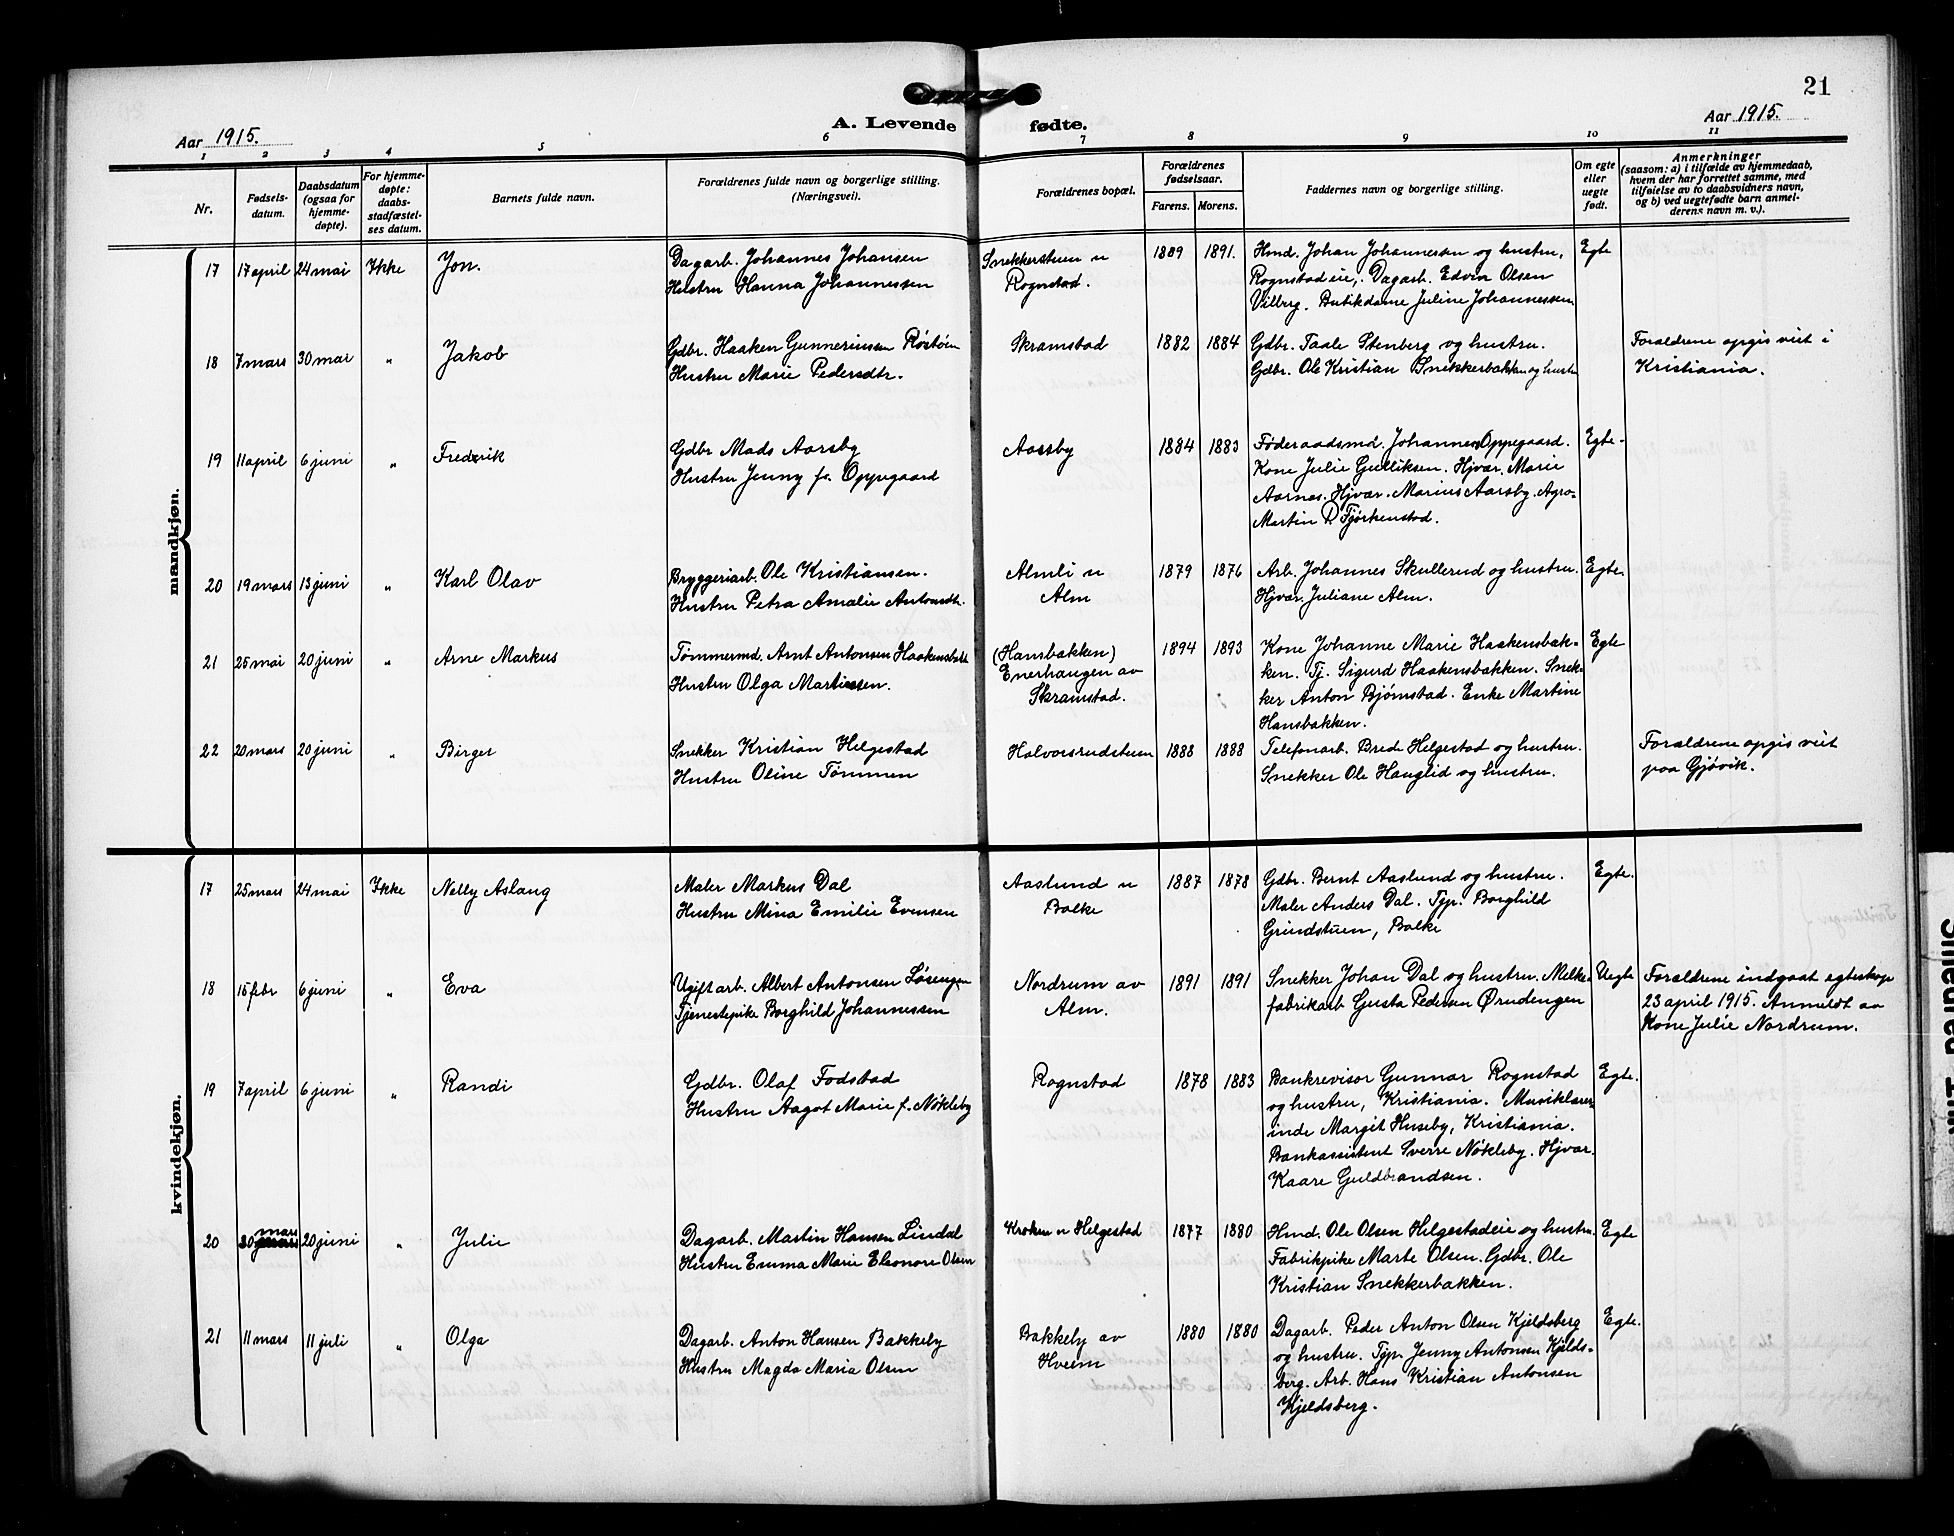 21
A. Levende fødte.
Aar 1915.
Aar 1915.
1 2 3 4 5 6 7 8 9 10 11
Nr.
Fødsels-
datum.
Daabsdatum
(ogsaa for
hjemme-
døpte).
For hjemme-
døpte:
daabs-
stadfæstel-
ses datum.
Barnets fulde navn.
Forældrenes fulde navn og borgerlige stilling.
(Næringsvei).
Forældrenes bopæl.
Forældrenes
fødselsaar.
Farens. Morens.
Faddernes navn og borgerlige stilling.
Om egte
eller
uegte
født.
Anmerkninger
(saasom: a) i tilfælde av hjemmedaab,
hvem der har forrettet samme, med
tilføielse av to daabsvidners navn,
og b) ved uegtefødte barn anmel-
derens navn m. v.).
mandkjøn.
17 17 april 24 mai Ikke Jon.
Dagarb. Johannes Johansen
Hustru Hanna Johannessen
Snekkerstuen u
Rognstad.
1889 1891.
Hmd. Johan Johannessen og hustru,
Rognstadeie, Dagarb. Edvin Olsen
Vilberg. Butikdame Juline Johannessen
Egte
18 7 mars 30 mai " Jakob
Gdbr. Haaken Gunneriussen Röstöen
Hustru Marie Pedersdtr.
Skramstad
1882 1884
Gdbr. Taale Stenberg og hustru.
Gdbr. Ole Kristian Snekkerbakken og hustru
Forældrene opgis viet i
Kristiania.
19 11 april 6 juni " Frederik
Gdbr Mads Aarsby
Hustru Jenny f. Oppegaard
Aarsby
1884 1883
Föderaadsmd. Johannes Oppegaard.
Kone Julie Gulliksen. Hjvær. Marie
Aarnes. Hjvær. Marius Aarsby. Agro-
Martin P Fjørkenstad.
Egte.
20 19 mars 13 juni " Karl Olav
Bryggeriarb. Ole Kristiansen.
Hustru Petra Amalie Antonsdtr.
Almli u
Alm
1879 1876
Arb. Johannes Skullerud og hustru.
Hjvær. Juliane Alm.
Egte.
21 25 mai 20 juni " Arne Markus
Tømmermd. Arnt Antonsen Haakensbakk
Hustru Olga Martinsen.
(Hansbakken)
Enerhaugen av
Skramstad.
1894 1893
Kone Johanne Marie Haakensbak-
ken. Tj. Sigurd Haakensbakken. Snek-
ker Anton Bjørnstad. Enke Martine
Hansbakken.
Egte
22 20 mars 20 juni " Birger
Snekker Kristian Helgestad
Hustru Oline Tømmen
Halvorsrudstuen
1888 1888
Telefonarb. Brede Helgestad og hustru.
Snekker Ole Hauglid og hustru.
Forældrene opgis viet
paa Gjövik.
kvindekjøn.
17 25 mars 24 mai Ikke Nelly Aslaug
Maler Markus Dal
Hustru Mina Emilie Evensen
Aaslund u
Balke
1887 1878
Gdbr. Bernt Aaslund og hustru.
Maler Anders Dal. Typ. Borghild
Grindstuen, Balke
Egte.
18 15 febr 6 juni " Eva
Ugift arb. Albert Antonsen Løsengen
Tjenestepike Borghild Johannessen
Nordrum av
Alm.
1891 1891
Snekker Johan Dal og hustru. Melke-
fabrikarb Gusta Pedersen Ørudengen
Uegte
Forældrene indgaat egteskap
23 april 1915. Anmeldt av
Kone Julie Nordrum.
19 7 april 6 juni " Randi
Gdbr. Olaf Fodstad
Hustru Aagot Marie f. Nökleby
Rognstad
1878 1883
Bankrevisor Gunnar Rognstad
og hustru, Kristiania. Musiklærer-
inde Margit Huseby, Kristiania.
Bankassistent Sverre Nökleby. Hjvær.
Kaare Guldbrandsen.
Egte.
20 30 mars 20 juni " Julie
Dagarb. Martin Hansen Lindal
Hustru Emma Marie Eleonore Olsen
Kroken u Helgestad
1877 1880
Hmd. Ole Olsen Helgestadeie og hustru.
Fabrikpike Marte Olsen. Gdbr. Ole
Kristian Snekkerbakken.
Egte
21 11 mars 11 juli " Olga
Dagarb. Anton Hansen Bakkeby
Hustru Magda Maria Olsen
Bakkeby av
Hveem
1880 1880
Dagarb. Peder Anton Olsen Kjeldsberg
og hustru. Typ. Jenny Antonsen Kjelds-
berg. Arb. Hans Kristian Antonsen
Kjeldsberg.
Egte.